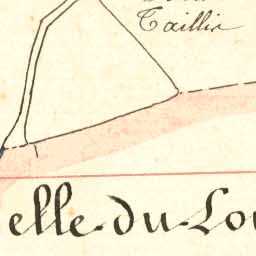 Taillis
elle-du-Lou